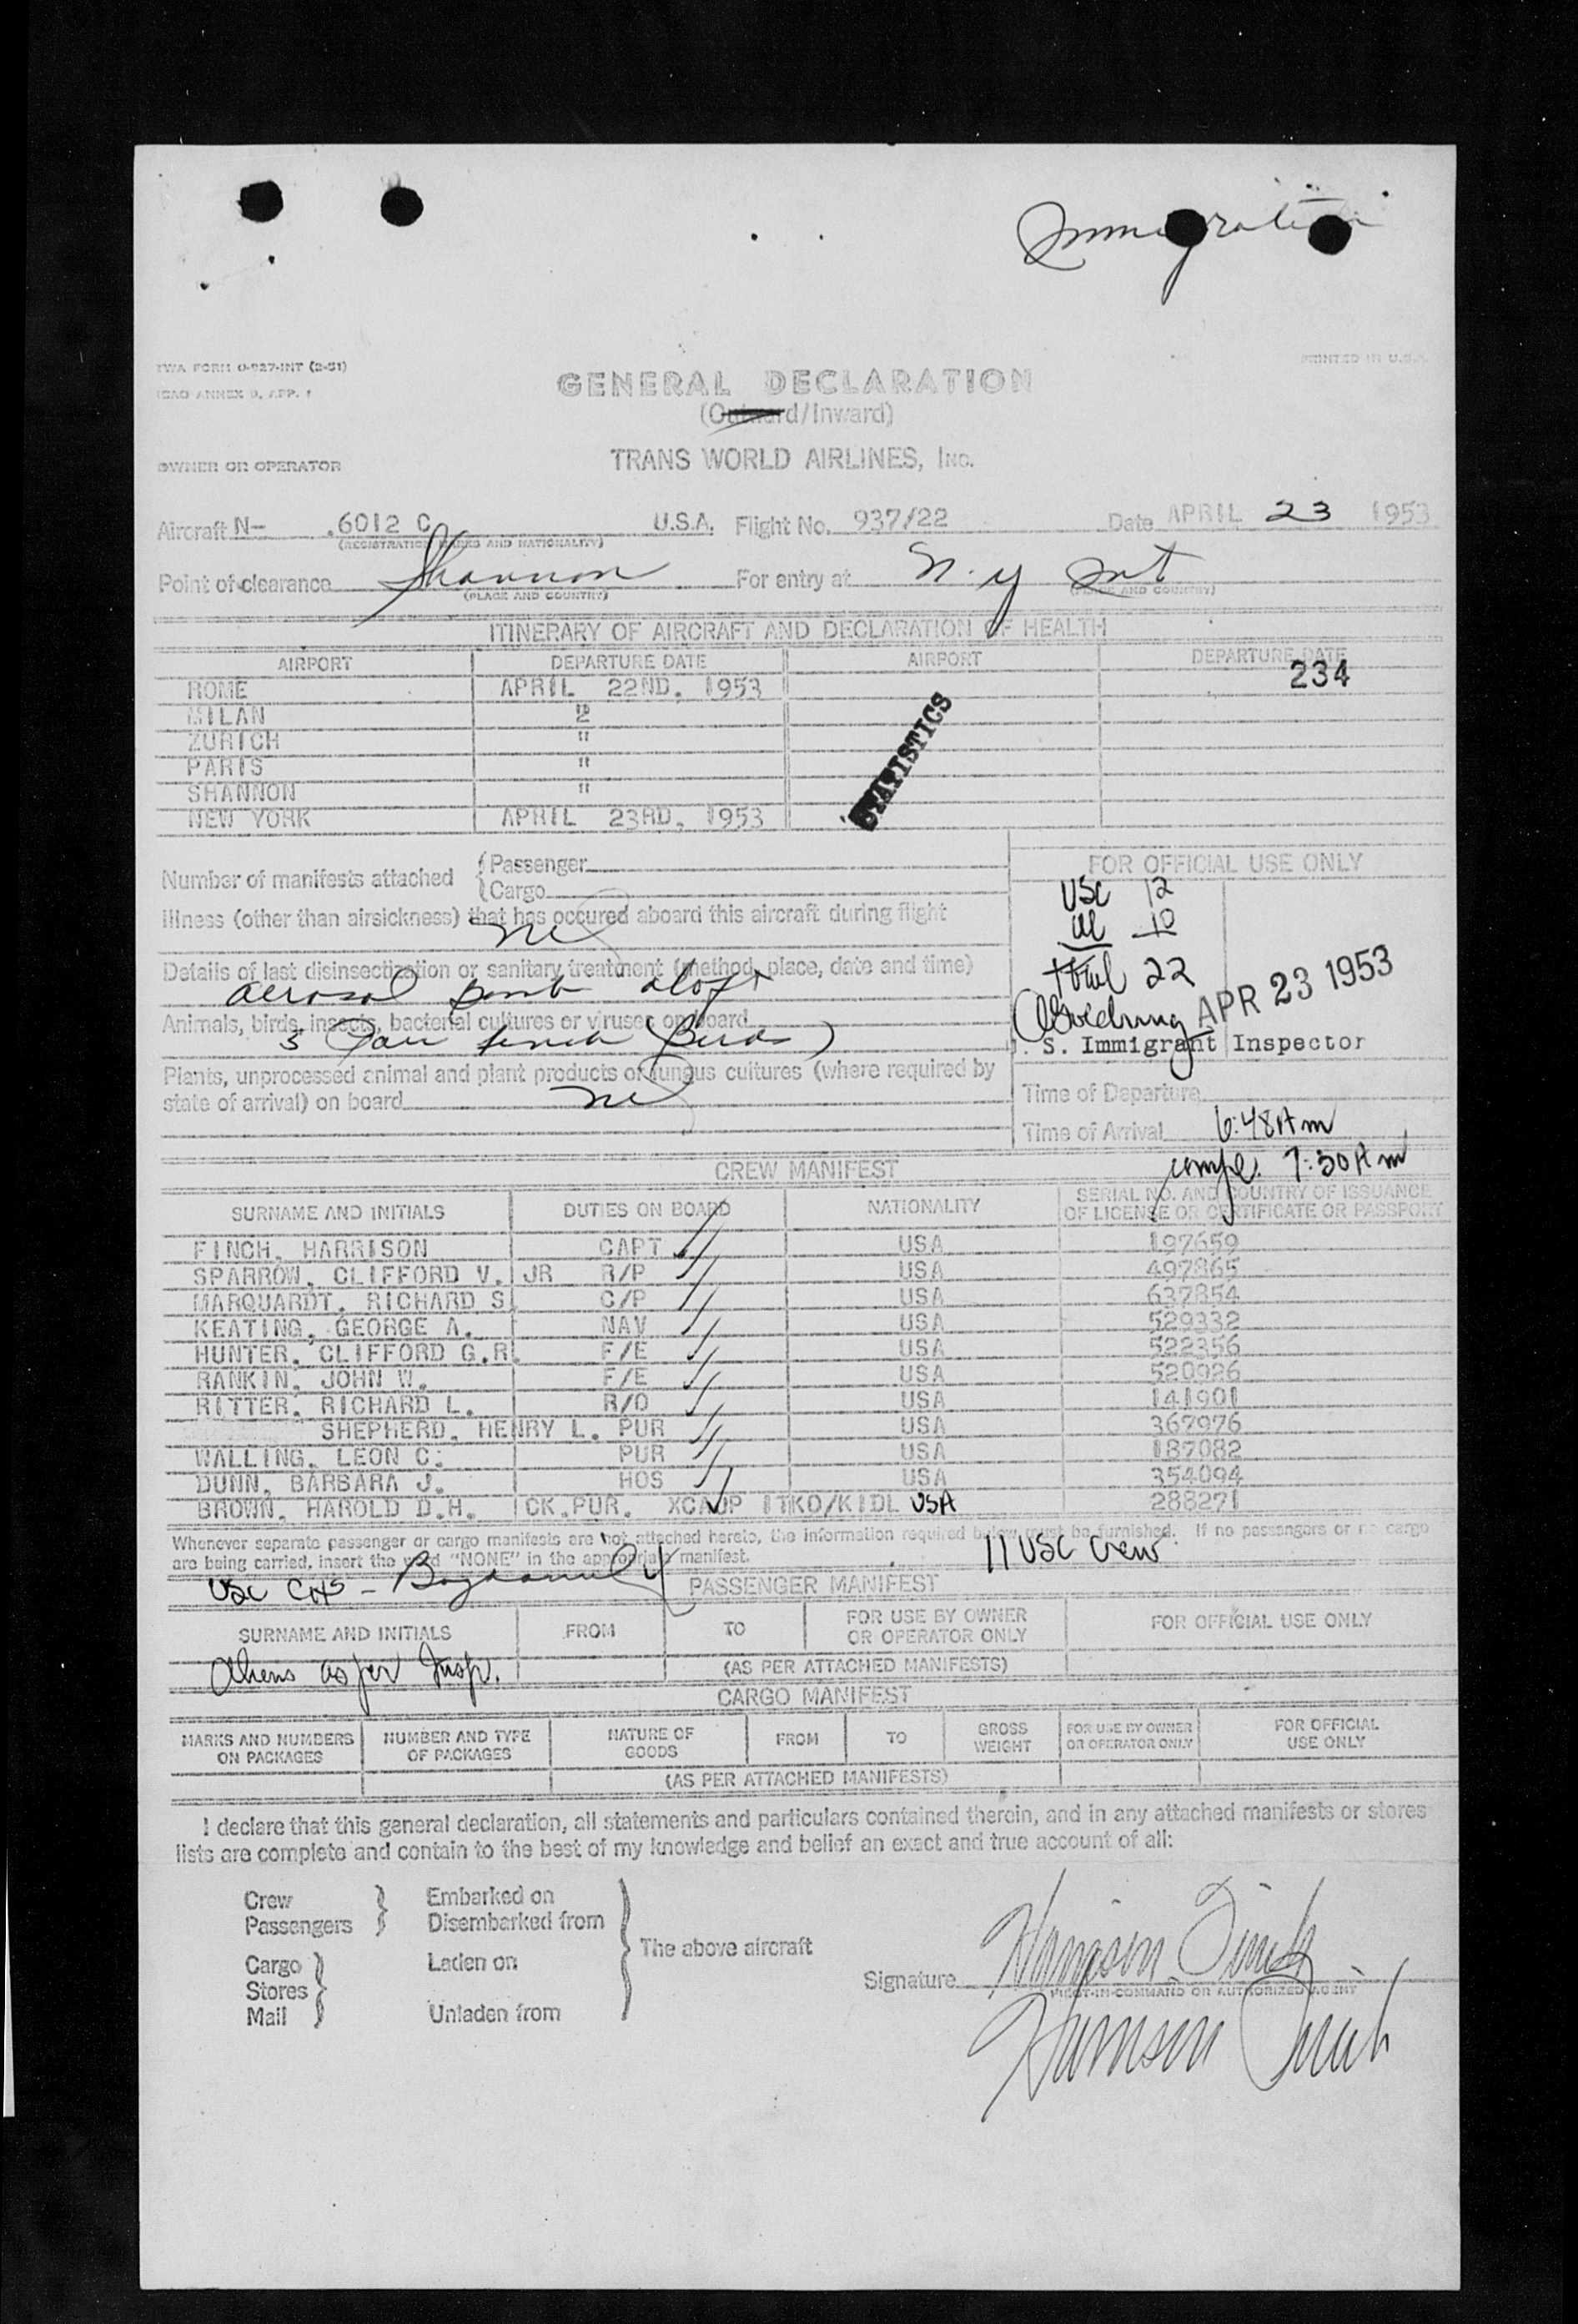 Immigration
TWA FORM 0-927-INT (2-51)
PRINTED IN U.S.A.
ICAO ANNEX 9, APP. 1
GENERAL DECLARATION
(Outward/Inward)
OWNER OR OPERATOR
TRANS WORLD AIRLINES, INC.
Aircraft N- 6012 C U.S.A. Flight No. 937/22 Date APRIL 23 1953
(REGISTRATION MARKS AND NATIONALITY)
Point of clearance Shannon For entry at N.Y Int
(PLACE AND COUNTRY) (PLACE AND COUNTRY)
ITINERARY OF AIRCRAFT AND DECLARATION OF HEALTH
AIRPORT DEPARTURE DATE AIRPORT DEPARTURE DATE
234
ROME APRIL 22ND, 1953
MILAN "
ZURICH "
PARIS "
SHANNON "
NEW YORK APRIL 23RD, 1953
STATISTICS
Number of manifests attached {Passenger
{Cargo
FOR OFFICIAL USE ONLY
USC 12
al 10
total 22
Illness (other than airsickness) that has occured aboard this aircraft during flight
nil
Details of last disinsectization or sanitary treatment (method, place, date and time)
aerosol bomb aloft
Animals, birds, insects, bacterial cultures or viruses on board
5 Pair finch (Birds)
APR 23 1953
U. S. Immigrant Inspector
Plants, unprocessed animal and plant products or fungus cultures (where required by
state of arrival) on board nil
Time of Departure
Time of Arrival 6:48 Am
compl. 7:30 Am
CREW MANIFEST
SURNAME AND INITIALS DUTIES ON BOARD NATIONALITY SERIAL NO. AND COUNTRY OF ISSUANCE
OF LICENSE OR CERTIFICATE OR PASSPORT
FINCH, HARRISON CAPT USA 197659
SPARROW, CLIFFORD V. JR R/P USA 497865
MARQUARDT, RICHARD S. C/P USA 637854
KEATING, GEORGE A. NAV USA 529332
HUNTER, CLIFFORD G.R. F/E USA 522356
RANKIN, JOHN W. F/E USA 520926
RITTER, RICHARD L. R/O USA 141901
SHEPHERD, HENRY L. PUR USA 367976
WALLING, LEON C. PUR USA 187082
DUNN, BARBARA J. HOS USA 354094
BROWN, HAROLD D.H. CK.PUR. XCAUP ITKO/KIDL USA 288271
Whenever separate passenger or cargo manifests are not attached hereto, the information required below must be furnished. If no passengers or no cargo
are being carried, insert the word "NONE" in the appropriate manifest.
11 USC Crew
USC
PASSENGER MANIFEST
SURNAME AND INITIALS FROM TO FOR USE BY OWNER
OR OPERATOR ONLY FOR OFFICIAL USE ONLY
Aliens as per Insp.
(AS PER ATTACHED MANIFESTS)
CARGO MANIFEST
MARKS AND NUMBERS
ON PACKAGES NUMBER AND TYPE
OF PACKAGES NATURE OF
GOODS FROM TO GROSS
WEIGHT FOR USE BY OWNER
OR OPERATOR ONLY FOR OFFICIAL
USE ONLY
(AS PER ATTACHED MANIFESTS)
I declare that this general declaration, all statements and particulars contained therein, and in any attached manifests or stores
lists are complete and contain to the best of my knowledge and belief an exact and true account of all:
Crew Embarked on
Passengers Disembarked from
The above aircraft
Cargo Laden on
Stores
Mail Unladen from
Signature Harrison Finch
PILOT-IN-COMMAND OR AUTHORIZED AGENT
Harrison Finch